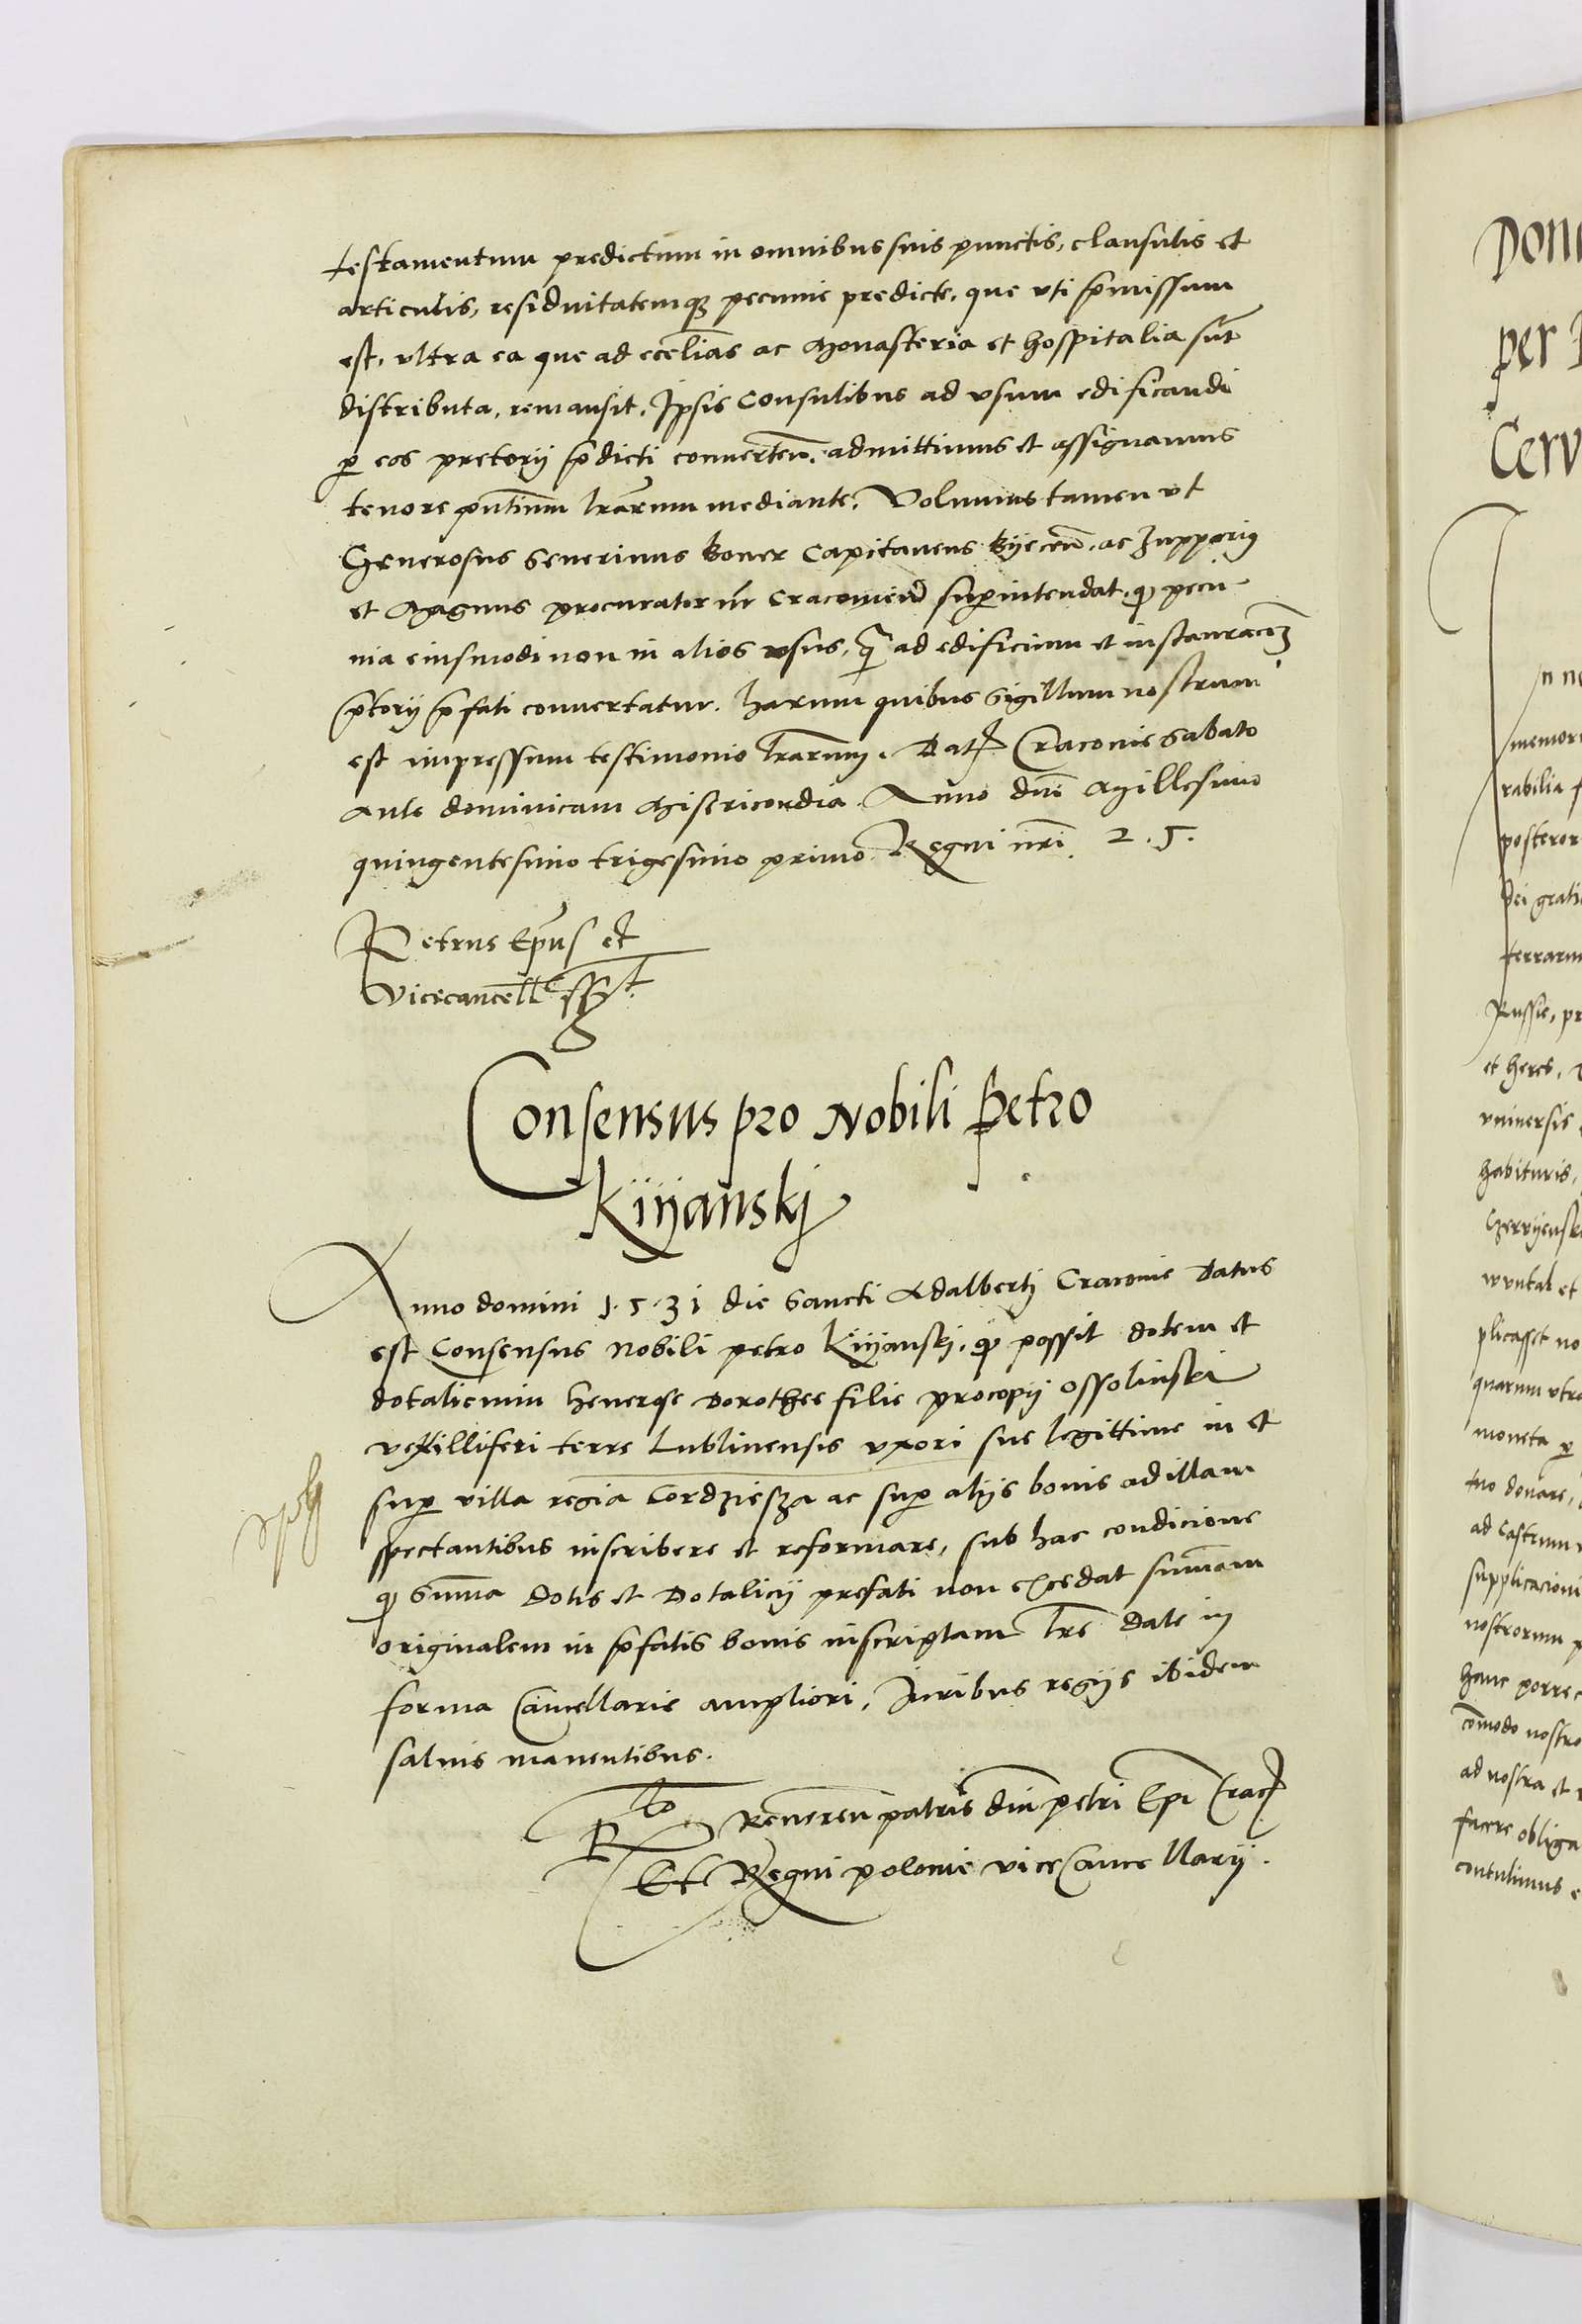 testamentum predictum in omnibus suis punctis, clausulis et
articulis, residuitatemqꝫ pecunie predicte, que uti p̃missum
est, ultra ea que ad ecc̃lias ac Monasteria et hospitalia su͂t
distributa, remansit, Ipsis Consulibus ad usum edificandi
ꝑ eos pretorij p̃dicti conuerten͂. admittimus et assignamus
tenore pn̄tium lr̄arum mediante. Volumus tamen ut
Generosus Seuerinus Boner Capitaneus Byeceñ. ac Zupparius
et Magnus procurator nr̄ Cracouieñ suꝑintendat, qꝫ pecu
nia eiusmodi non in alios usus, q̃ ad edificium et instauracõeꝫ
p̃torij p̃fati conuertatur. Harum quibus Sigillum nostrum
est impressum testimonio lr̄arum. Dat̃ Cracouie Sabato
Ante dominicam Misericordia Anno dn̄i Millesimo
quingentesimo trigesimo primo. Regni nr̄i 25.
Petrus Ep̄us et
Vicecancell̃ sst.
Consensus pro Nobili Petro
Kijyanskj
Anno domini 1.5.31 die Sancti Adalbertj Cracouie Datus
est Consensus Nobili petro Kijyanskj, qꝫ possit dotem et
dotalicium Generose Dorothee filie procopij ossolinski
vexilliferi terre Lublinensis uxori sue legittime in et
suꝑ villa regia Cordziesza ac suꝑ alijs bonis ad illam
spectantibus inscribere et reformare, sub hac condicione
qꝫ Summa dotis et Dotalicij prefati non excedat summam
originalem in p̃fatis bonis inscriptam lr̄e date in
forma Cancellarie ampliori, Juribus regijs ibidem
saluis manentibus.
Rͭᵒ Reueren͂ patris dn̄i petri Ep̄i Crac̃
Et Regni polonie viceCancellarij.
Domi
per
Cerv
In no
memori
rabilia f
posteror
Dei grati
terraru
Russie, pr
et heres,
uniuersis
habituris,
Czerwijensk
plicasset no
quarum utra
moneta ꝑ
tuo donare,
ad Castrum
supplicacioni
nostrorum p
hanc porrec
com̄odo nostro
ad nostra et
facere obliga
contulimus e